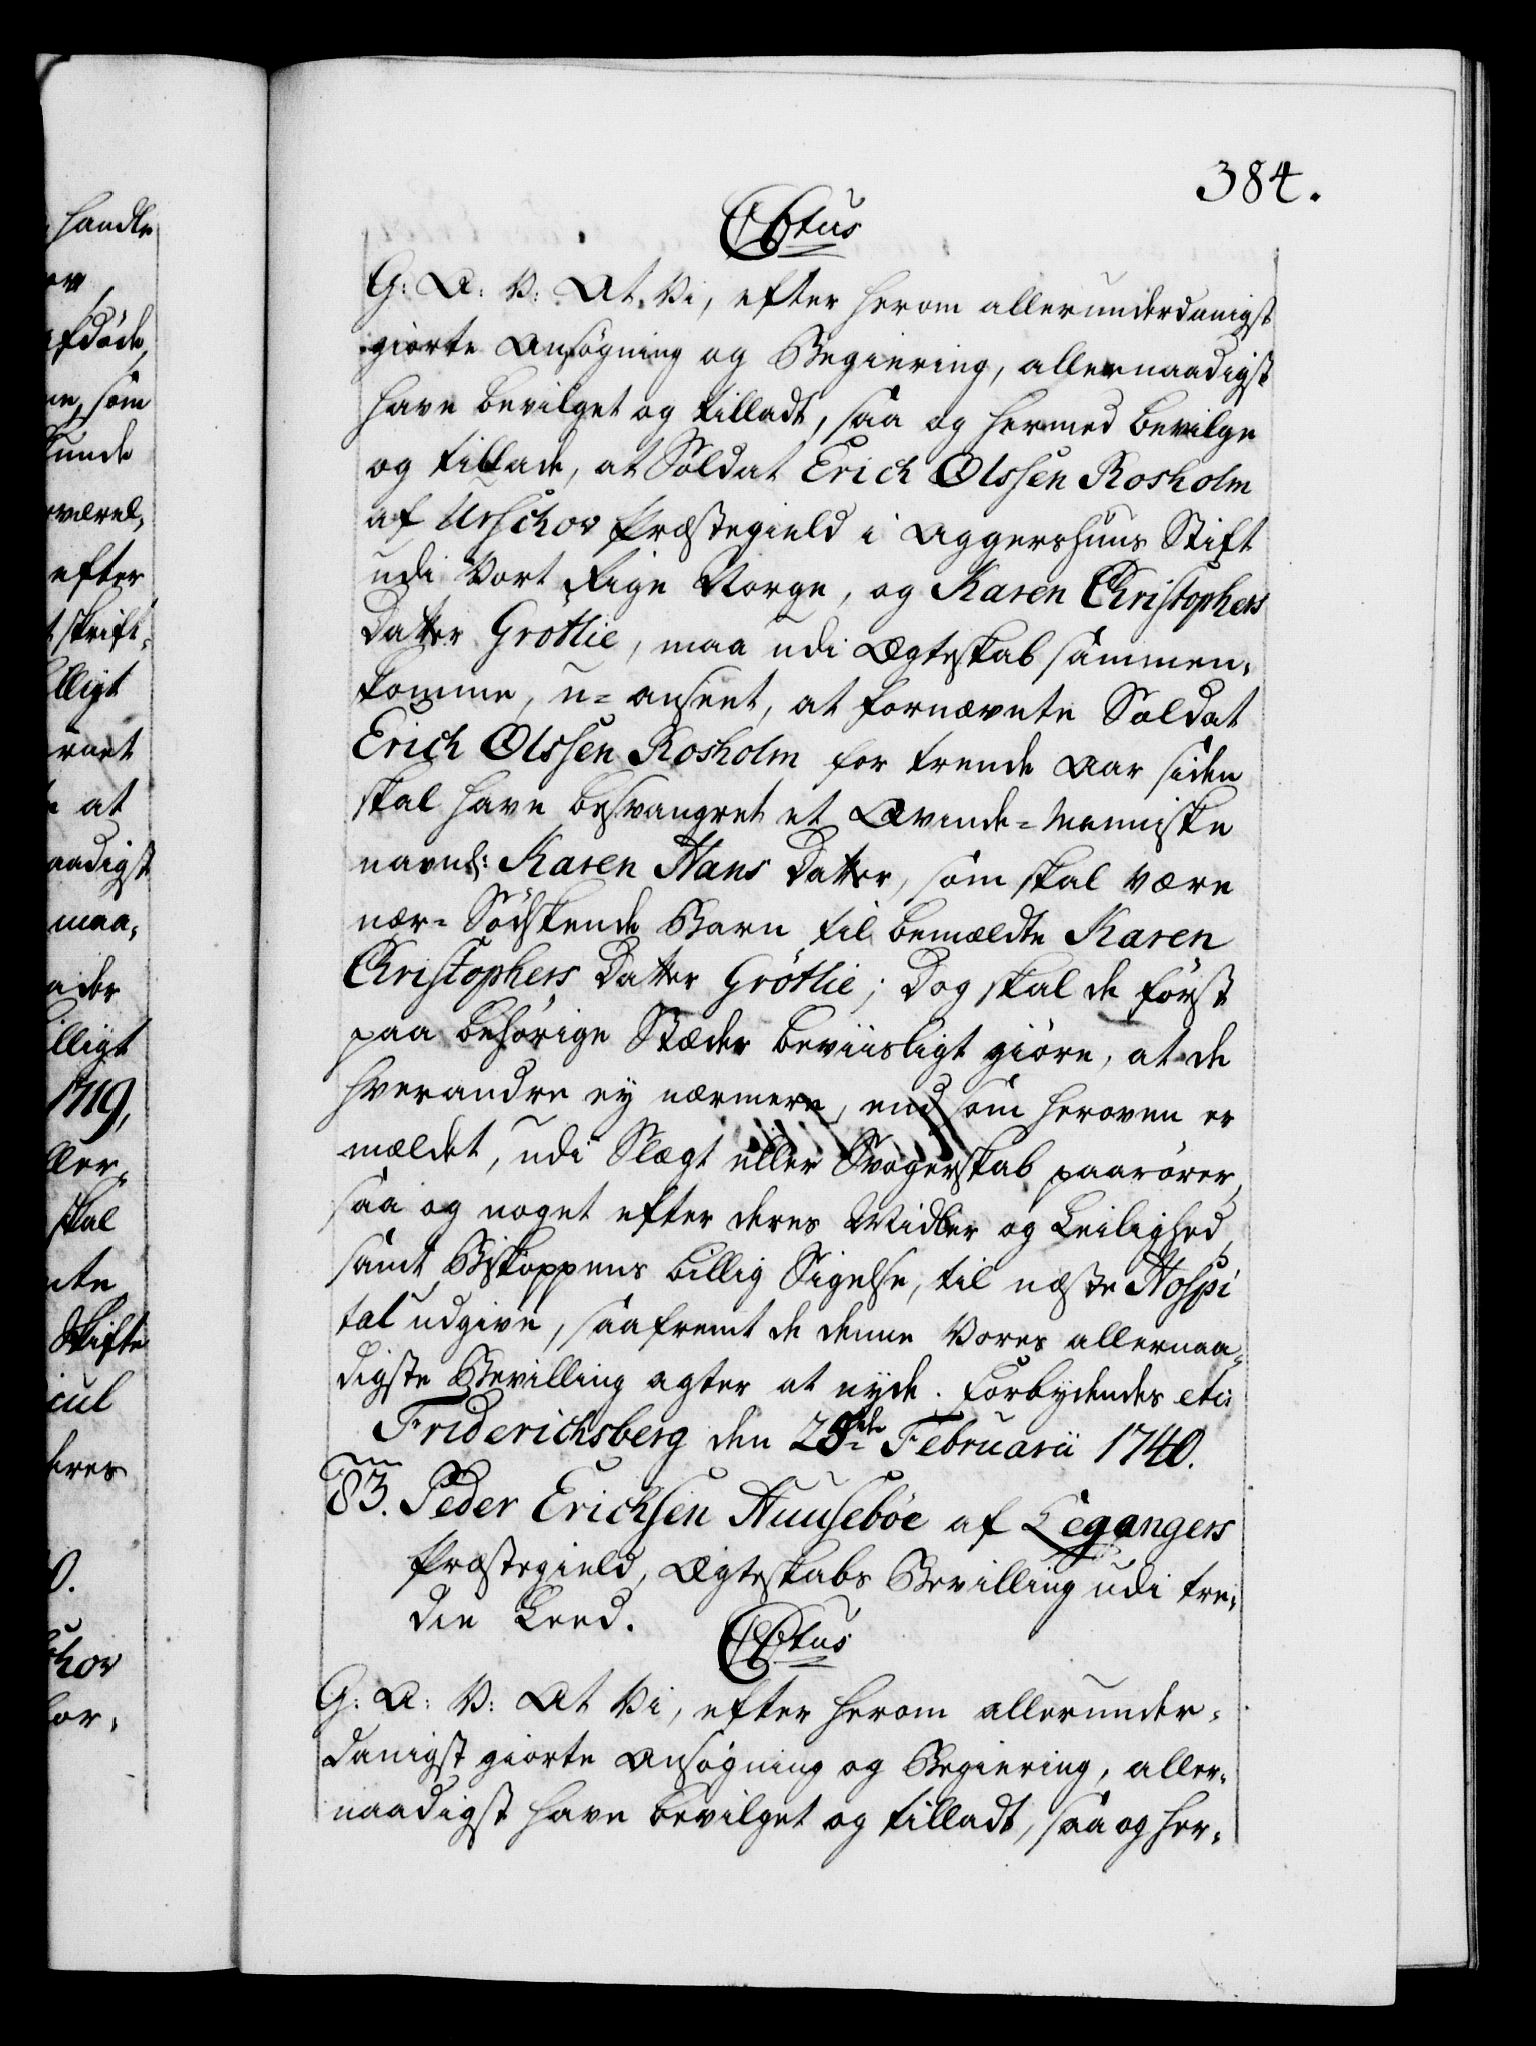 384.
CVItus
G: A: V: At Vi, efter herom allerunderdanigst
giorte Ansøgning og Begiering, allernaadigst
have bevilget og tilladt, saa og hermed bevilge
og tillade, at Soldat Erich Olssen Rosholm
af Urschov Præstegield i Aggershuus Stift
udi Vort Rige Norge, og Karen Christophers
Datter Grøtlie, maa udi Ægteskab sammen-
komme, u-anseet, at fornævnte Soldat
Erich Olssen Rosholm for trende Aar siden
skal have besvangret et Qvinde-Menniske
navnl: Karen Hans Datter, som skal være
nær-Södskende Barn til bemældte Karen
Christophers Datter Grøtlie; Dog skal de først
paa behørige Stæder beviisligt giøre, at de
hverandre ey nærmere, end som heroven er
mældet, udi Slægt eller Svogerskab paarører,
saa og noget efter deres Midler og Leilighed,
samt Biskoppens billig Sigelse, til næste Hospi
tal udgive, saafremt de denne Vores allernaa-
digste Bevilling agter at nyde. Forbydendes etc:
Friderichsberg den 25de Februarii 1740.
83. Peder Erichsen Huusebøe af Legangers
Præstegield, Ægteskabs Bevilling udi tre-
die Leed.
CVItus
G: A: V: At Vi, efter herom allerunder-
danigst giorte Ansøgning og Begiering, aller-
naadigst have bevilget og tilladt, saa og her-